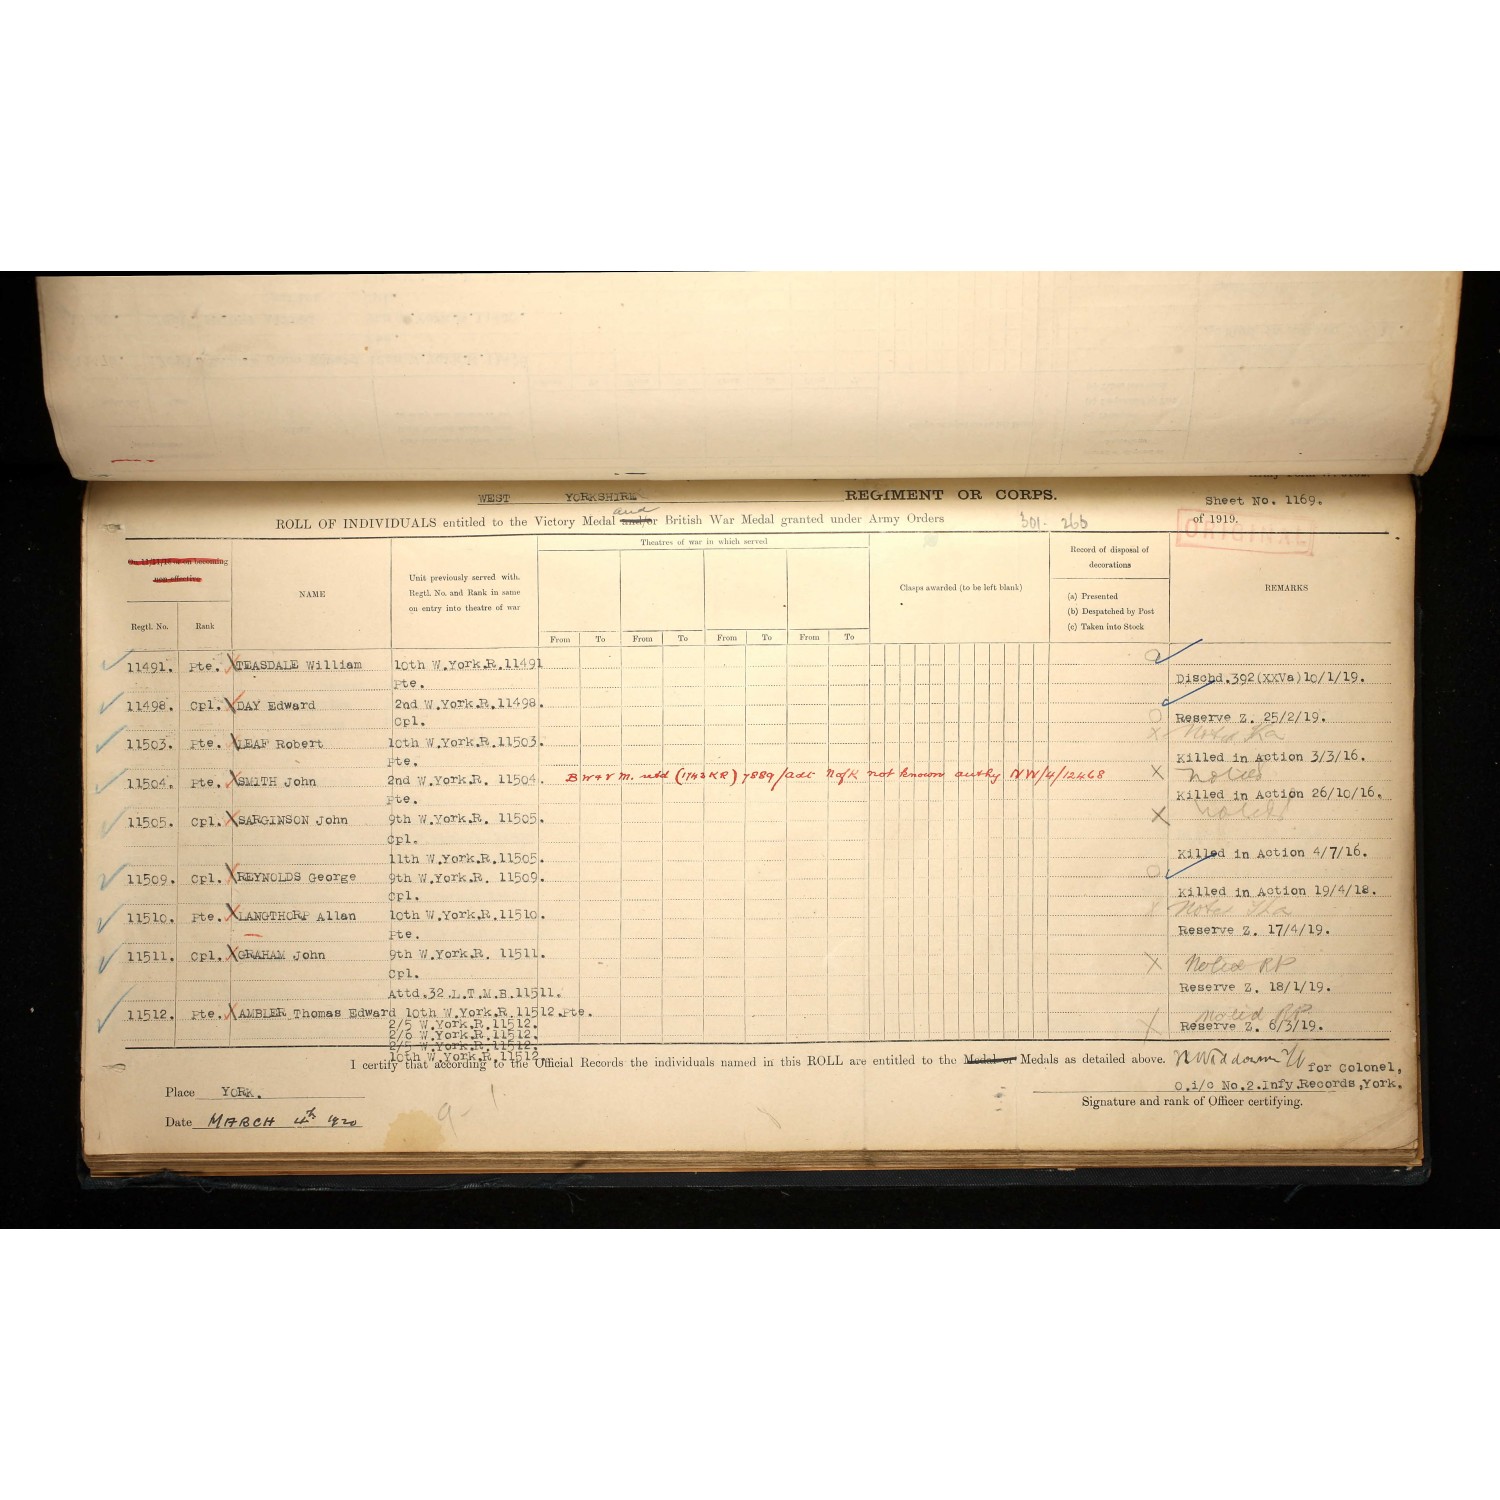 WEST YORKSHIRE REGIMENT OR CORPS.
Sheet No. 1169.
ROLL OF INDIVIDUALS entitled to the Victory Medal and/or and British War Medal granted under Army Orders 301. 266 of 1919.
ORIGINAL
On 11/11/18 or on becoming
non-effective
Regtl. No. Rank
NAME
Unit previously served with.
Regtl. No. and Rank in same
on entry into theatre of war
Theatres of war in which served
From To From To From To From To
Clasps awarded (to be left blank)
Record of disposal of
decorations
(a) Presented
(b) Despatched by Post
(c) Taken into Stock
REMARKS
11491. Pte. TEASDALE William 10th W.York.R.11491
Pte. Dischd.392(XXVa)10/1/19.
11498. Cpl. DAY Edward 2nd W.York.R.11498.
Cpl. Reserve Z. 25/2/19.
11503. Pte. LEAF Robert 10th W.York.R.11503. Noted
Pte. Killed in Action 3/3/16.
11504. Pte. SMITH John 2nd W.York.R. 11504. B W & V M. retd (1743 KR) 7889/adt N of K not known authy NW/4/12468 Noted
Pte. Killed in Action 26/10/16.
11505. Cpl. SARGINSON John 9th W.York.R. 11505. Noted
Cpl.
11th W.York.R.11505. Killed in Action 4/7/16.
11509. Cpl. REYNOLDS George 9th W.York.R. 11509.
Cpl. Killed in Action 19/4/18.
11510. Pte. LANGTHORP Allan 10th W.York.R.11510. Noted
Pte. Reserve Z. 17/4/19.
11511. Cpl. GRAHAM John 9th W.York.R. 11511. Noted RP
Cpl.
Attd.32.L.T.M.B.11511. Reserve Z. 18/1/19.
11512. Pte. AMBLER Thomas Edward 10th W.York.R.11512.Pte. Noted RP
2/5 W.York.R.11512. Reserve Z. 6/3/19.
2/6 W.York.R.11512.
2/5 W.York.R.11512.
10th W.York.R.11512.
I certify that according to the Official Records the individuals named in this ROLL are entitled to the Medal or Medals as detailed above.
for Colonel,
O.i/c No.2.Infy.Records,York.
Signature and rank of Officer certifying.
Place YORK.
Date MARCH 4th 1920